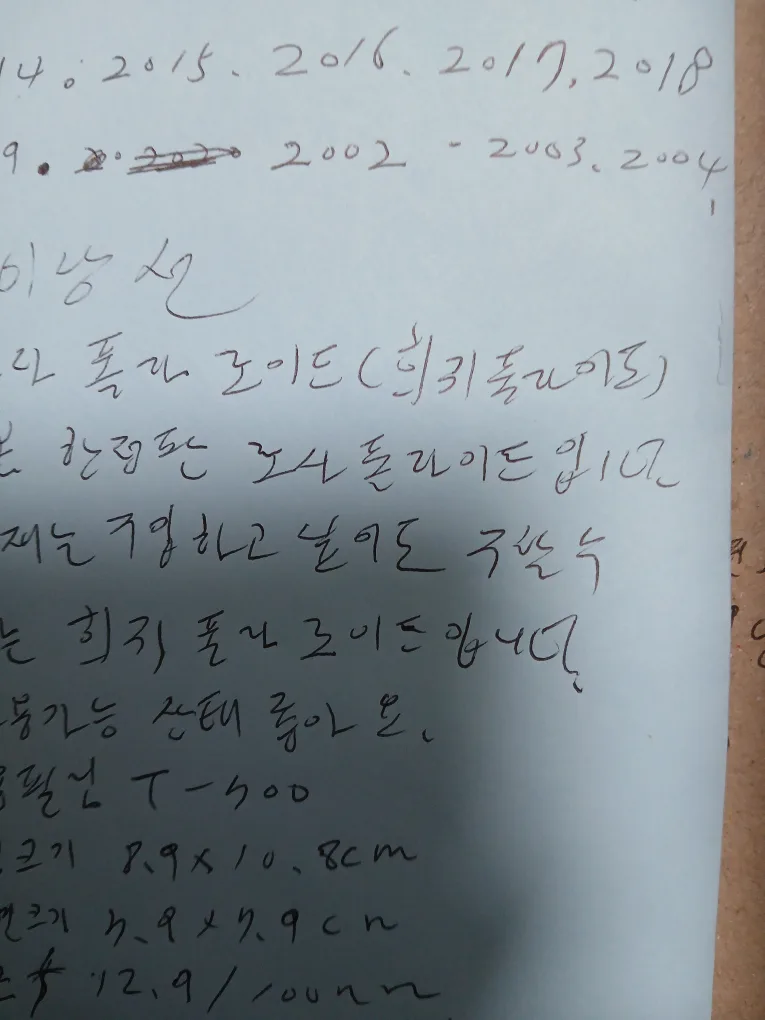 14. 2015. 2016. 2017. 2018
9. 2002 - 2003. 2004,
이낭선
라 폴라로이드(희귀폴라이드)
한정판 로사 폴라이드입니다
재는 구입하고 싶어도 구할 수
는 희귀 폴라로이드입니다.
사용가능 상태 좋아요.
용필님 T-500
크기 8.9×10.8cm
면크기 5.9×7.9cm
12.9/100mm